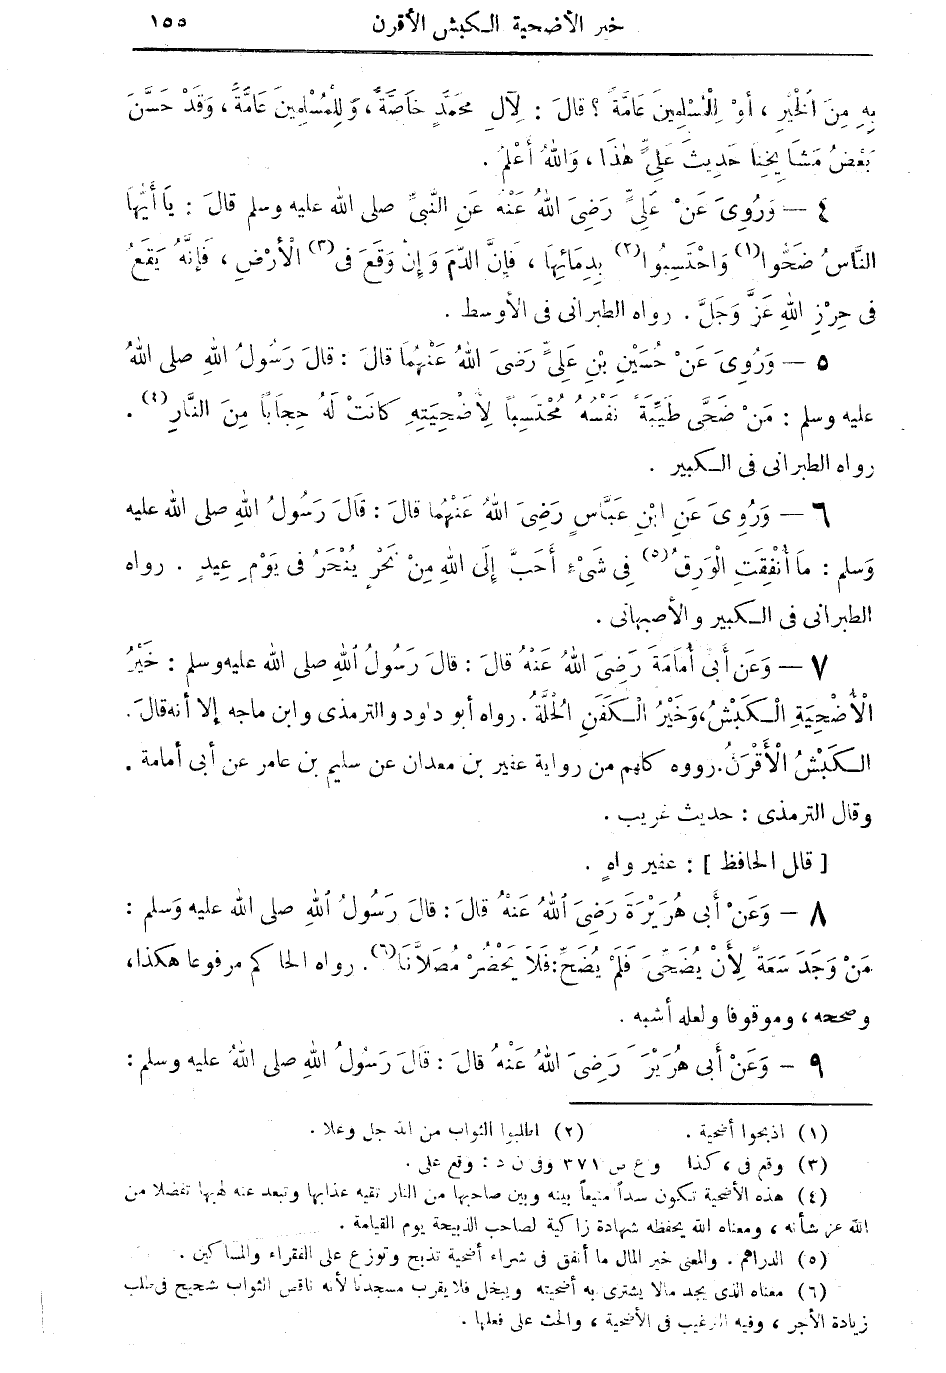 خبر الأضحية الكبش الأقرن ١٥٥
بِهِ مِنَ الْخَيْرِ ، أَوْ لِلْمُسْلِمِينَ عَامَّةً ؟ قَالَ : لِآلِ مُحَمَّدٍ خَاصَّةً ، وَلِلْمُسْلِمِينَ عَامَّةً ، وَقَدْ حَسَّنَ
بَعْضُ مَشَايِخِنَا حَدِيثَ عَلِيٍّ هٰذَا ، وَاللهُ أَعْلَمُ .
٤ — وَرُوِىَ عَنْ عَلِيٍّ رَضِىَ اللهُ عَنْهُ عَنِ النَّبِيِّ صلى الله عليه وسلم قَالَ : يَا أَيُّهَا
النَّاسُ ضَحُّوا (١) وَاحْتَسِبُوا (٢) بِدِمَائِهَا ، فَإِنَّ الدَّمَ وَإِنْ وَقَعَ فِى (٣) الْأَرْضِ ، فَإِنَّهُ يَقَعُ
فِى حِرْزِ اللهِ عَزَّ وَجَلَّ . رواه الطبرانى فى الأوسط .
٥ — وَرُوِىَ عَنْ حُسَيْنِ بْنِ عَلِيٍّ رَضِىَ اللهُ عَنْهُمَا قَالَ : قَالَ رَسُولُ اللهِ صلى اللهُ
عليه وسلم : مَنْ ضَحَّى طَيِّبَةً نَفْسُهُ مُحْتَسِبًا لِأُضْحِيَتِهِ كَانَتْ لَهُ حِجَابًا مِنَ النَّارِ (٤) .
رواه الطبرانى فى الكبير .
٦ — وَرُوِىَ عَنِ ابْنِ عَبَّاسٍ رَضِىَ اللهُ عَنْهُمَا قَالَ : قَالَ رَسُولُ اللهِ صلى الله عليه
وَسلم : مَا أُنْفِقَتِ الْوَرِقُ (٥) فِى شَىْءٍ أَحَبَّ إِلَى اللهِ مِنْ نَحْرٍ يُنْحَرُ فِى يَوْمِ عِيدٍ . رواه
الطبرانى فى الكبير والأصبهانى .
٧ — وَعَن أَبِى أُمَامَةَ رَضِىَ اللهُ عَنْهُ قَالَ : قَالَ رَسُولُ اللهِ صلى الله عليه وسلم : خَيْرُ
الْأُضْحِيَةِ الْكَبْشُ ، وَخَيْرُ الْكَفَنِ الْحُلَّةُ . رواه أبو داود والترمذى وابن ماجه إلا أنه قال .
الْكَبْشُ الْأَقْرَنُ . رووه كلهم من رواية عفير بن معدان عن سليم بن عامر عن أبى أمامة .
وقال الترمذى : حديث غريب .
[ قال الحافظ ] : عفير واهٍ .
٨ — وَعَنْ أَبِى هُرَيْرَةَ رَضِىَ اللهُ عَنْهُ قَالَ : قَالَ رَسُولُ اللهِ صلى الله عليه وَسلم :
مَنْ وَجَدَ سَعَةً لِأَنْ يُضَحِّىَ فَلَمْ يُضَحِّ : فَلَا يَحْضُرْ مُصَلَّانَا (٦) . رواه الحاكم مرفوعا هكذا ،
وصححه ، وموقوفا ولعله أشبه .
٩ — وَعَنْ أَبِى هُرَيْرَ َ رَضِىَ اللهُ عَنْهُ قَالَ : قَالَ رَسُولُ اللهِ صلى اللهُ عليه وسلم :
(١) اذبحوا أضحية . (٢) اطلبوا الثواب من الله جل وعلا .
(٣) وقع فى ، كذا وع ص ٣٧١ وفى ن د : وقع على .
(٤) هذه الأضحية تكون سداً منيعاً بينه وبين صاحبها من النار تقيه عذابها وتبعد عنه لهبها تفضلا من
الله عز شأنه ، ومعناه الله يحفظه شهادة زاكية لصاحب الذبيحة يوم القيامة .
(٥) الدراهم . والمعنى خير المال ما أنفق فى شراء أضحية تذبح وتوزع على الفقراء والمساكين .
(٦) معناه الذى يجد مالا يشترى به أضحيته ويبخل فلا يقرب مسجدنا لأنه ناقص الثواب شحيح فى طلب
زيادة الأجر ، وفيه الترغيب فى الأضحية ، والحث على فعلها .